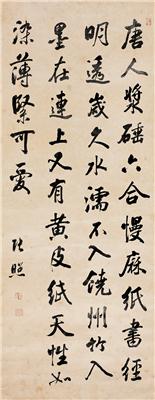 唐人漿硾六合慢麻紙書經
明透歲久水濡不入饒州竹入
墨在連上又有黃皮紙天性如
染薄緊可愛
張照